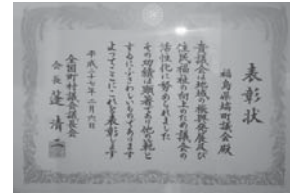 表彰状
福島県塙町議会殿
貴議会は地域の振興発展及び
住民福祉の向上のため議会の
活性化に努められました
その功績は顕著であり他の範と
するにふさわしいものであります
よってここにこれを表彰します
平成二十七年二月六日
全国町村議会議長会
会長 蓬 清二